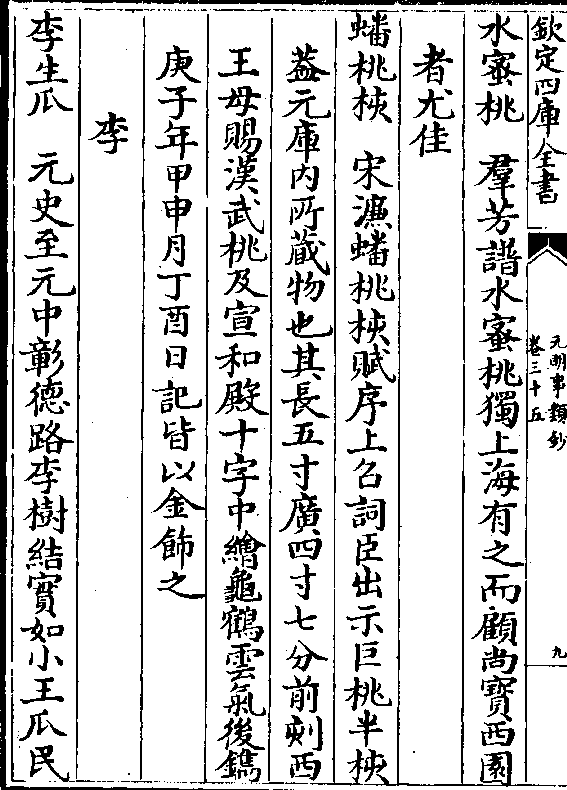 欽定四庫全書
元明事類鈔
卷三十五
九
水蜜桃　羣芳譜水蜜桃獨上海有之而顧尚寶西園
者尤佳
蟠桃核　宋濂蟠桃核賦序上召詞臣出示巨桃半核
葢元庫内所藏物也其長五寸廣四寸七分前刻西
王母賜漢武桃及宣和殿十字中繪龜鶴雲氣後鐫
庚子年甲申月丁酉日記皆以金飾之
李
李生瓜　元史至元中彰德路李樹結實如小王瓜民